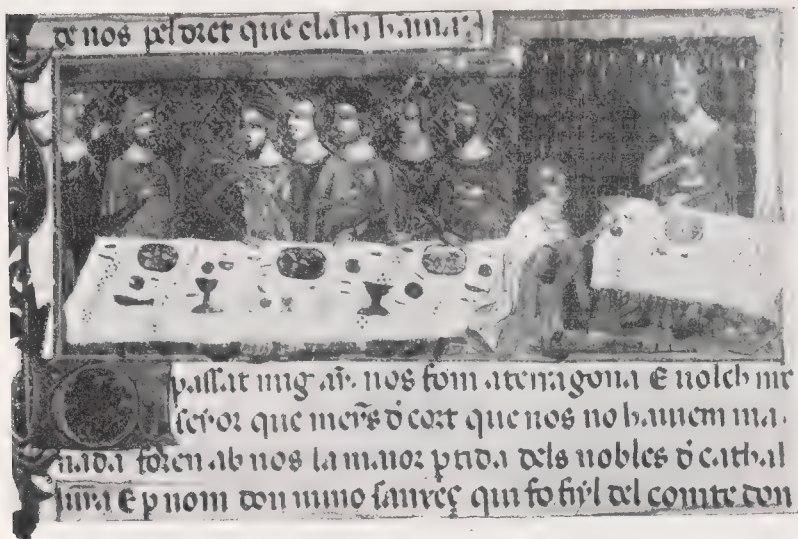 de nos pel dret que ela hi hauia
E passat mig añ. nos fom a terragona E uolch nr̃e
senyor que mens đ cort que nos no hauiem ma-
nada foren ab nos la maior ptida dels nobles đ cathal
E p nom don nuno sanxeç qui fo fiyl del comte don